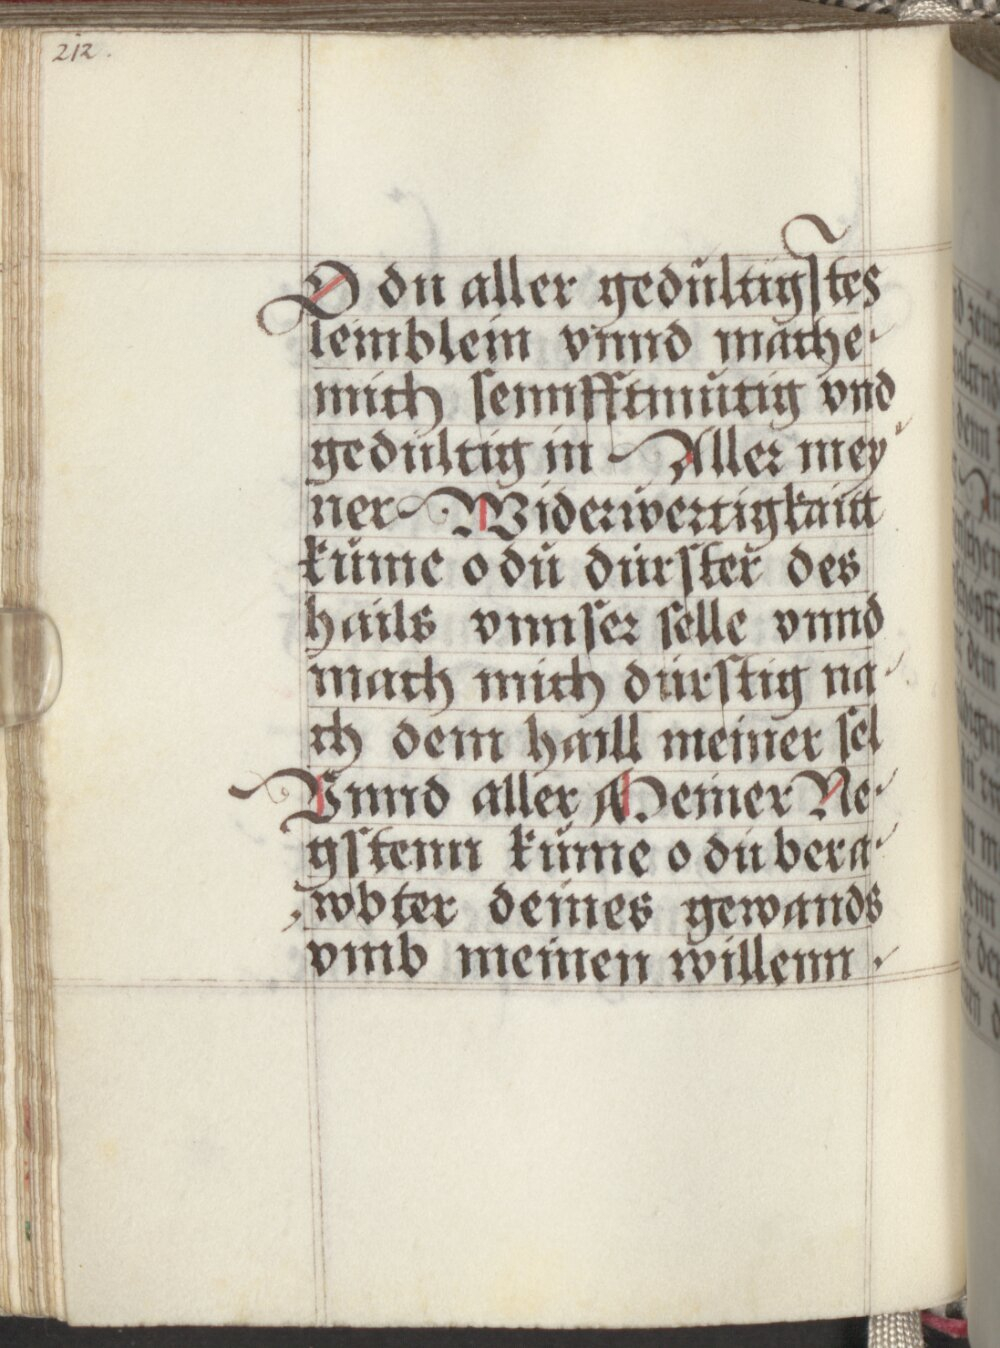 212.
O du aller gedŭltigstes
lemblein vnnd mache
mich sennfftmŭtig vnd
gedultig in Aller mey
ner Widerwertigkaitt
kŭme o dŭ durster des
hails vnnser selle vnnd
mach mich durstig na
ch dem haill meiner sel
Vnnd aller Meiner Ne
gstenn kŭme o du bera
wbter deines gewands
vmb meinen willenn .